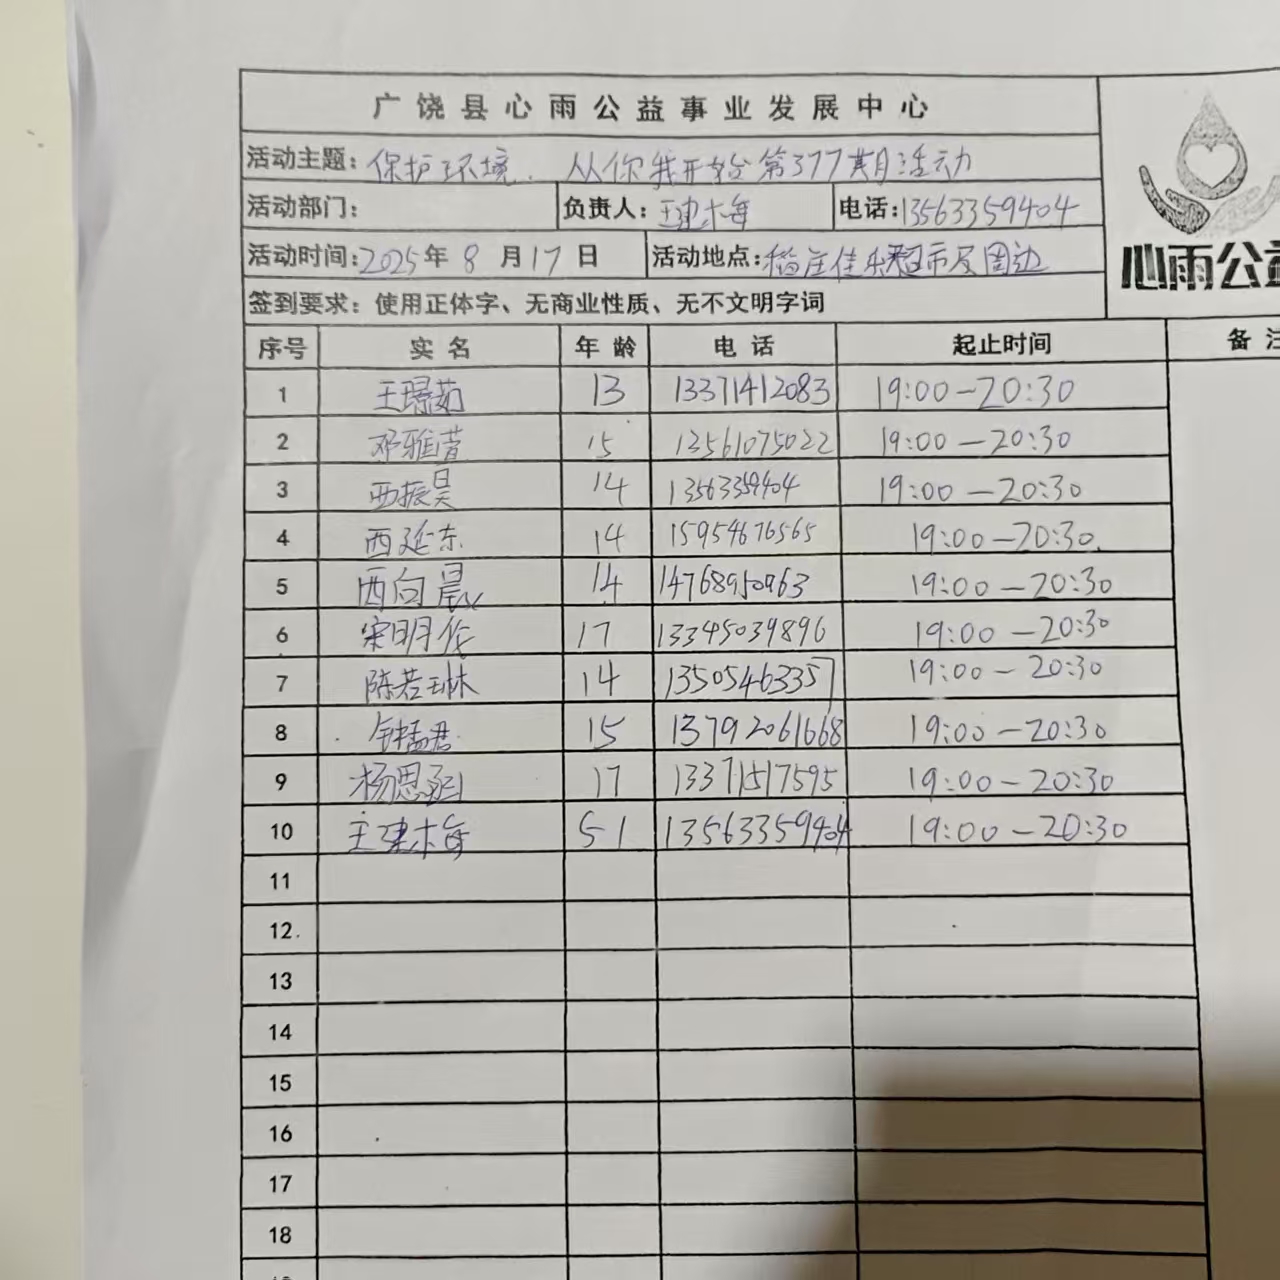 广饶县心雨公益事业发展中心
活动主题：保护环境．从你我开始第377期活动
活动部门： 负责人：王建梅 电话：13563359404
活动时间：2025年8月17日 活动地点：稻庄佳乐超市及周边
心雨公益
签到要求：使用正体字、无商业性质、无不文明字词
序号 实名 年龄 电话 起止时间 备注
1 王璟茹 13 13371412083 19:00—20:30
2 邓雅萱 15 13561075022 19:00—20:30
3 西振昊 14 13563359404 19:00—20:30
4 西延东 14 15954676565 19:00—20:30
5 西向晨 14 14768950963 19:00—20:30
6 宋明伦 17 13345039896 19:00—20:30
7 陈若琳 14 13505463357 19:00—20:30
8 钟孟君 15 13792061668 19:00—20:30
9 杨思涵 17 13371517595 19:00—20:30
10 王建梅 51 13563359404 19:00—20:30
11
12
13
14
15
16
17
18